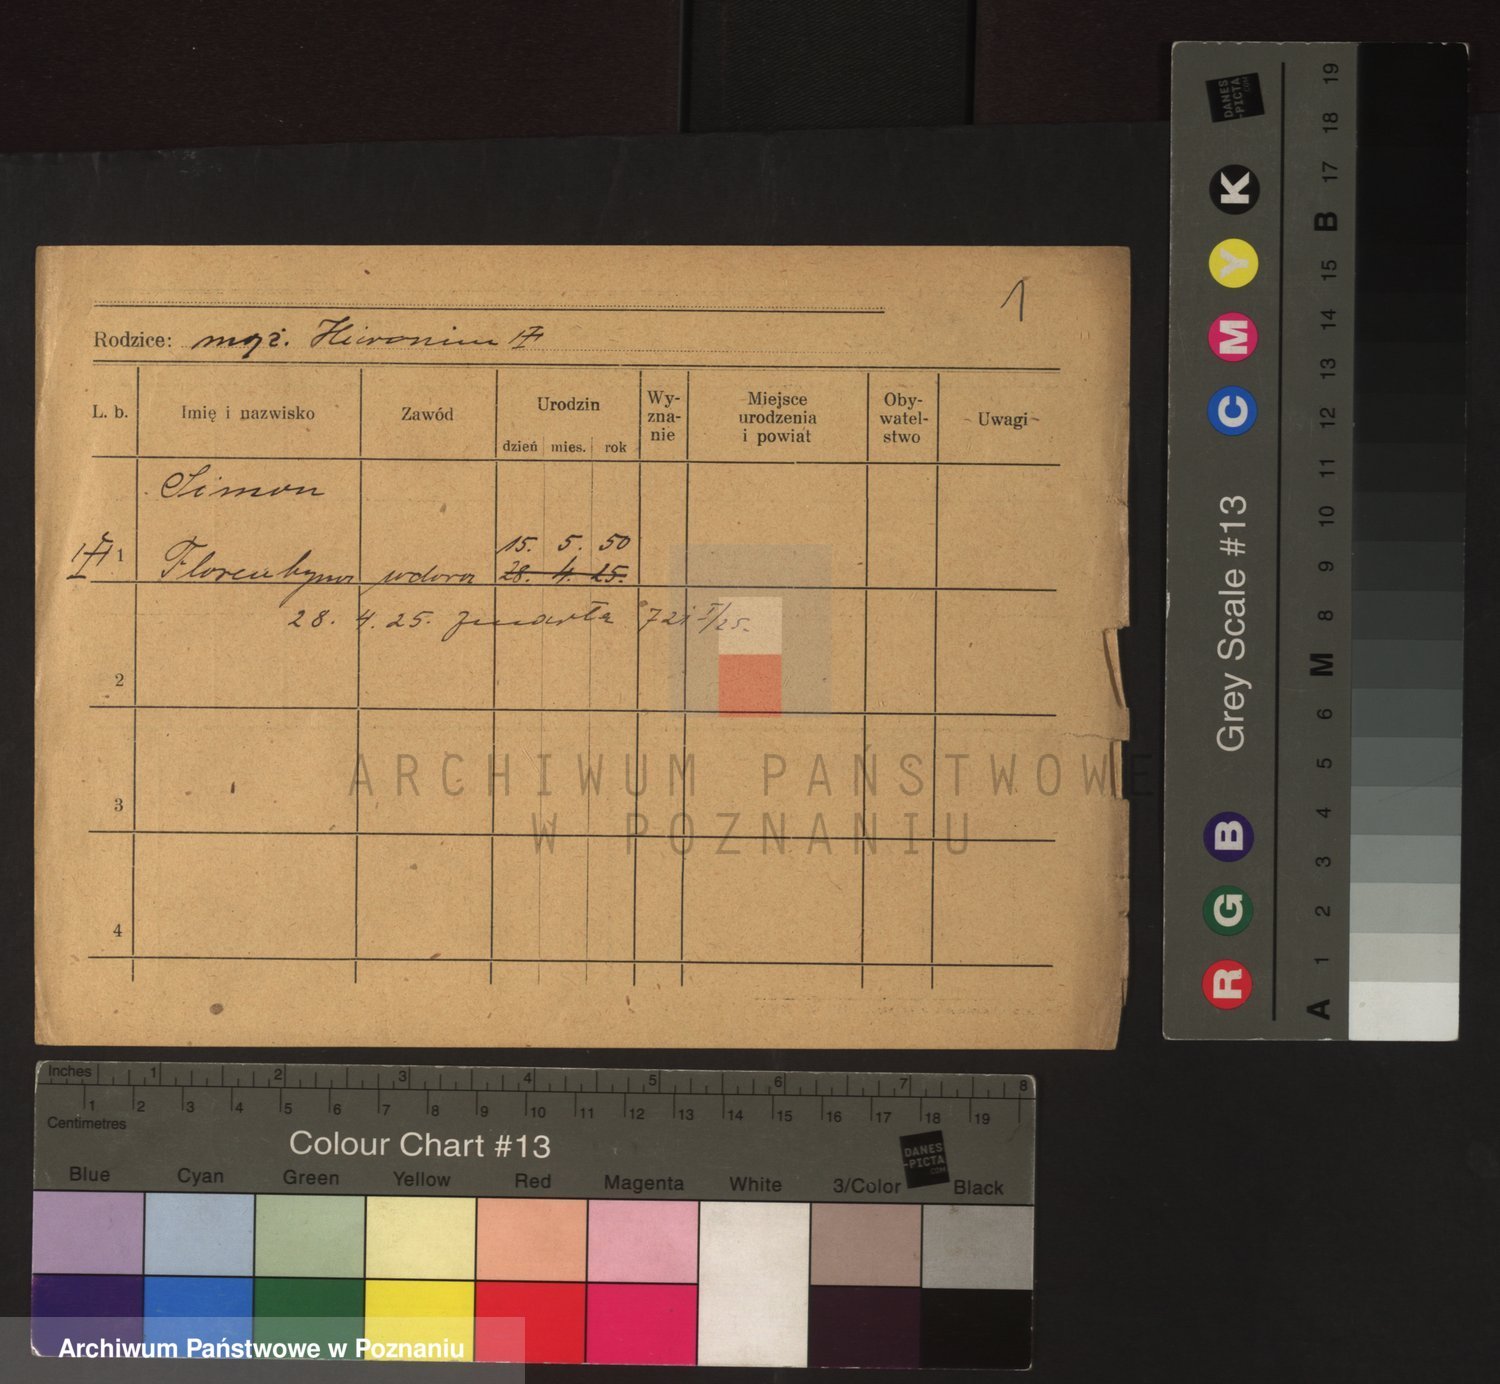 1
Rodzice: mąż. Hieronim
L. b. Imię i nazwisko Zawód Urodzin Wy-zna-nie Miejsce urodzenia i powiat Oby-watel-stwo Uwagi
dzień mies. rok
Simon
15. 5. 50
1 Florentyna wdowa 28. 4. 25.
28. 4. 25. zmarła 721 I/25.
2
3
4
ARCHIWUM PAŃSTWOWE
W POZNANIU
Inches 1 2 3 4 5 6 7 8
1 2 3 4 5 6 7 8 9 10 11 12 13 14 15 16 17 18 19
Centimetres
Colour Chart #13
DANES
-PICTA
.COM
Blue Cyan Green Yellow Red Magenta White 3/Color Black
Archiwum Państwowe w Poznaniu
DANES
-PICTA
.COM
R G B Grey Scale #13 C M Y K
A 1 2 3 4 5 6 M 8 9 10 11 12 13 14 15 B 17 18 19